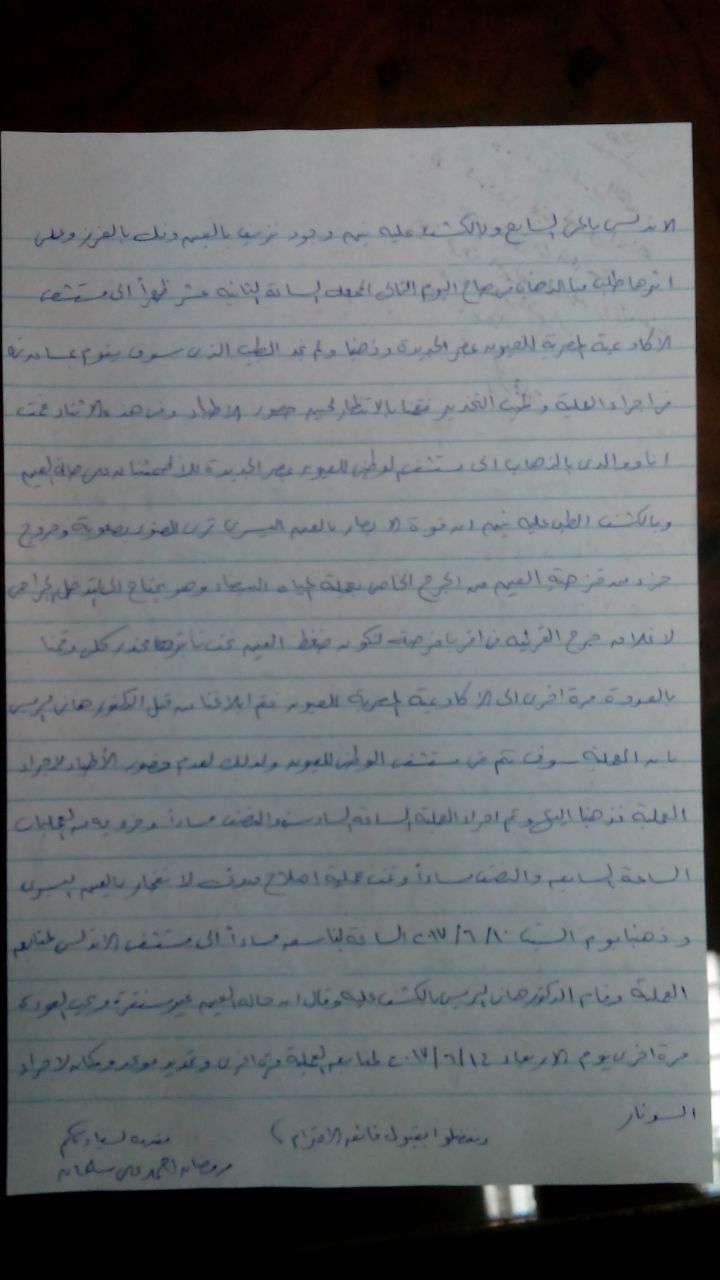 الاندلس بالحى السابع وبالكشف عليه تبين وجود نزيف بالعين وذلك بالفرز وعلى
اثرها طلب منا الذهاب فى صباح اليوم التالى الجمعه الساعة الثانيه عشر ظهراً الى مستشفى
الأكاديمية المصرية للعيون بمصر الجديدة وذهبنا ولم نجد الطبيب الذى سوف يقوم بمساعدته
فى اجراء العملية وطبيب التخدير فقمنا بالانتظار لحين حضور الاطباء وفى هذه الاثناء قمت
انا ووالدى بالذهاب الى مستشفى الوطنى للعيون بمصر الجديدة للأطمئنان على حالة العين
وبالكشف الطبى عليه تبين ان قوة الابصار بالعين اليسرى ترى الضوء بصعوبة وخروج
جزء من قزحية العين من الجرح الخاص بعملية المياه البيضاء وهو يحتاج الى التدخل الجراحى
لاغلاق جرح القرنيه فى اقرب فرصة لتكون ضغط العين تحت تأثير مخدر كلى وقمنا
بالعودة مرة اخرى الى الأكاديمية المصرية للعيون فتم ابلاغنا من قبل الدكتور هانى
بان العملية سوف تتم فى مستشفى الوطنى للعيون وذلك لعدم حضور الأطباء لاجراء
العملية فذهبنا اليها وتم اجراء العملية الساعة السادسة والنصف مساءاً وخروجه من العمليات
الساعة السابعه والنصف مساءاً وتمت عملية اصلاح بالعين اليسرى
وذهبنا يوم السبت ٢٠١٧/٦/١٠ الساعة التاسعه مساءاً الى مستشفى الاندلس لمتابعه
العملية وقام الدكتور هانى بالكشف عليه وقال ان حالة العين غير مستقرة ويجب العوده
مرة اخرى يوم الاربعاء ٢٠١٧/٦/١٤ لمتابعه العملية مرة اخرى وتحديد موعد ومكان لاجراء
السونار
وتفضلوا بقبول فائق الاحترام مقدمه لسيادتكم
رمضان احمد على سلمان